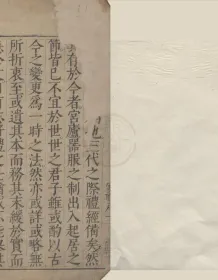 三代之際禮經備矣然
於今者宮廬器服之制出入起居之
節皆已不宜於世世之君子雖或酌以古
今之變更為一時之法然亦或詳或略無
所折衷至或遺其本而務其末緩於實而